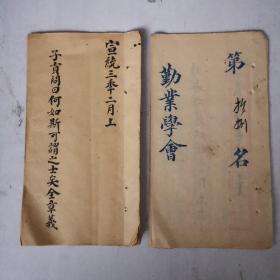 宣統三年二月上
子貢問曰何如斯可謂之士矣全章義
第 拾捌 名
勤業學會